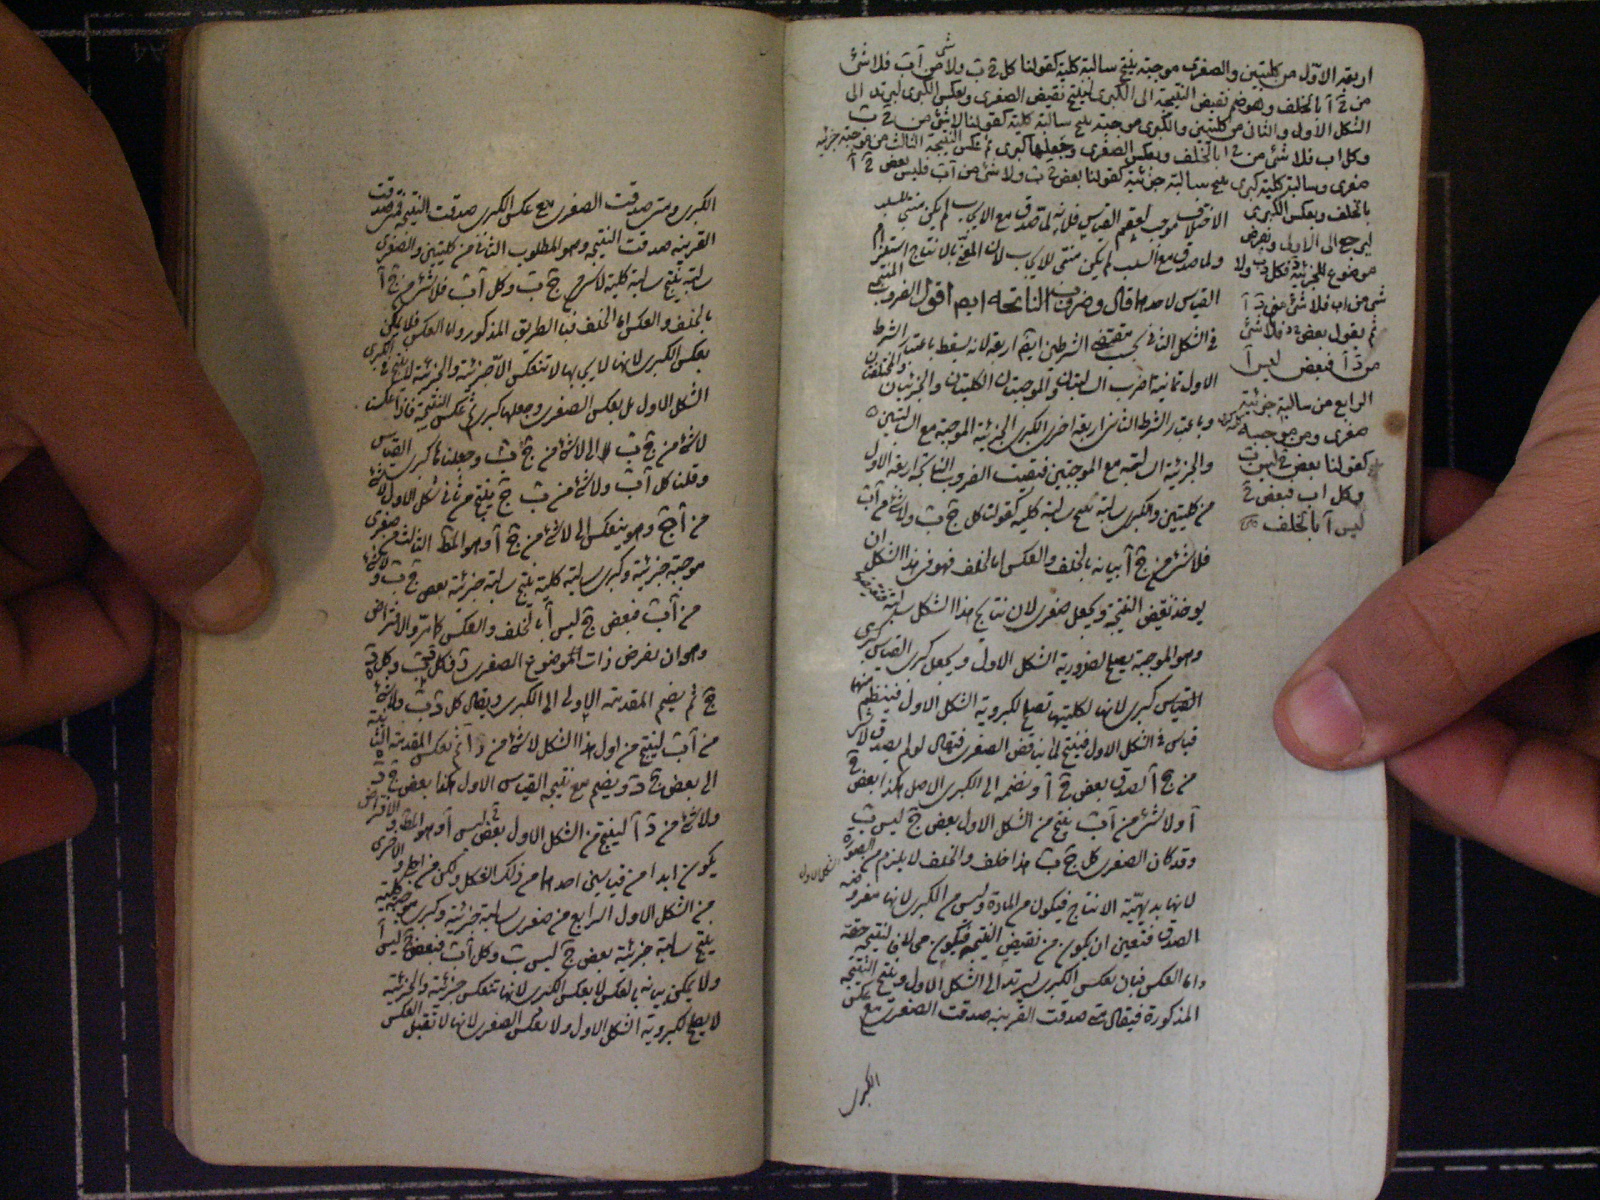 اربعة الاول من كليتين والصغرى موجبة ينتج سالبة كلية كقولنا كل ج ب ولا شئ من آ ب فلا شئ
من ج آ بالخلف وهو ضم نقيض النتيجة الى الكبرى لينتج نقيض الصغرى وبعكس الكبرى ليرتد الى
الشكل الاول والثانى من كليتين والكبرى موجبة ينتج سالبة كلية كقولنا لا شئ من ج ب
وكل اب فلا شئ من ج ا بالخلف وبعكس الصغرى وجعلها كبرى ثم عكس النتيجة الثالث من موجبة جزئية
صغرى وسالبة كلية كبرى ينتج سالبة جزئية كقولنا بعض ج ب ولا شئ من آ ب فليس بعض ج آ
بالخلف وبعكس الكبرى
ليرجع الى الاول ونفرض
موضوع الجزئية د فكل د ب ولا
شئ من اب فلا شئ من د آ
ثم نقول بعض ج د فلا شئ
من د آ فبعض ليس آ
الرابع من سالبة جزئية
صغرى وموجبة
كقولنا بعض ج ليس ب
وكل اب فبعض ج
ليس آ بالخلف
الاختلاف موجب لعقم القياس فلانه لما صدق مع الايجاب لم يكن منتجا للسلب
ولما صدق مع السلب لم يكن منتجا للايجاب لان المعنى بالانتاج استلزام
القياس لاحدهما قال وضروبه الناتجة ايضا اقول الضروب المنتجة
فى الشكل الثانى بحسب مقتضى الشرطين ايضا اربعة لانه يسقط باعتبار الشرط
الاول ثمانية اضرب السالبتان والموجبتان الكليتان والجزئيتان والمختلفتان
وباعتبار الشرط الثانى اربعة اخرى الكبرى الجزئية الموجبة مع السالبتين
والجزئية السالبة مع الموجبتين فبقيت الضروب الناتجة اربعة الاول
من كليتين والكبرى سالبة ينتج سالبة كلية كقولنا كل ج ب ولا شئ من آ ب
فلا شئ من ج آ بيانه بالخلف والعكس اما الخلف فهو فى هذا الشكل ان
يوخذ نقيض النتيجة ويجعل صغرى لان نتايج هذا الشكل سالبة فنقيضها
وهو الموجبة يصلح لصغروية الشكل الاول ويجعل كبرى القياس كبرى
القياس كبرى لانها لكليتها تصلح لكبروية الشكل الاول فينتظم منهما
قياس فى الشكل الاول فينتج لما يناقض الصغرى فيقال لو لم يصدق لا شئ
من ج آ لصدق بعض ج آ ونضمه الى الكبرى الاصل هكذا بعض ج
آ ولا شئ من آ ب ينتج من الشكل الاول بعض ج ليس ب
وقد كان الصغرى كل ج ب هذا خلف والخلف لا يلزم من الصورة
الشكل الاول
لانها بديهية الانتاج فيكون من المادة وليس من الكبرى لانها مفروضة
الصدق فتعين ان يكون من نقيض النتيجة فيكون محالا فالنتيجة حقة
واما العكس فبان بعكس الكبرى ليرتد الى الشكل الاول وينتج النتيجة
المذكورة فيقال متى صدقت القرينة صدقت الصغرى مع عكس
الكبرى
الكبرى ومتى صدقت الصغرى مع عكس الكبرى صدقت النتيجة فمتى صدقت
القرينة صدقت النتيجة وهو المطلوب الثانى من كليتين والصغرى
سالبة ينتج سالبة كلية لا شئ من ج ب وكل آ ب فلا شئ من ج آ
بالخلف والعكس اما الخلف فبالطريق المذكور واما العكس فلا يمكن
بعكس الكبرى لانها لايجابها لا تنعكس الا جزئية والجزئية لا ينتج فى كبرى
الشكل الاول بل بعكس الصغرى وجعلها كبرى ثم عكس النتيجة فاذا عكست
لا شئ من ج ب الى لا شئ من ب ج وجعلناها كبرى القياس
وقلنا كل آ ب ولا شئ من ب ج ينتج من ثانى الشكل الاول لا شئ
من آ ج وهو ينعكس الى لا شئ من ج آ وهو المط الثالث من صغرى
موجبة جزئية وكبرى سالبة كلية ينتج سالبة جزئية بعض ج ب ولا شئ
من آ ب فبعض ج ليس آ بالخلف والعكس كما مر والافتراض
وهو ان يفرض ذات الموضوع الصغرى د فكل د ب وكل د
ج ثم يضم المقدمة الاولى الى الكبرى ويقال كل د ب ولا شئ
من آ ب لينتج من اول هذا الشكل لا شئ من د آ ثم بعكس المقدمة الثانية
الى بعض ج د ويضم مع نتيجة القياس الاول هكذا بعض ج د
ولا شئ من د آ لينتج من الشكل الاول بعض ج ليس آ وهو المط والافتراض
يكون ابدا من قياسين احدهما من ذلك الشكل ولكن من اجلى والاخرى
من الشكل الاول الرابع من صغرى سالبة جزئية وكبرى موجبة كلية
ينتج سالبة جزئية بعض ج ليس ب وكل آ ب فبعض ج ليس آ
ولا يمكن بيانه بالعكس لا بعكس الكبرى لانها تنعكس جزئية والجزئية
لا يصلح لكبروية الشكل الاول ولا بعكس الصغرى لانها لا تقبل العكس